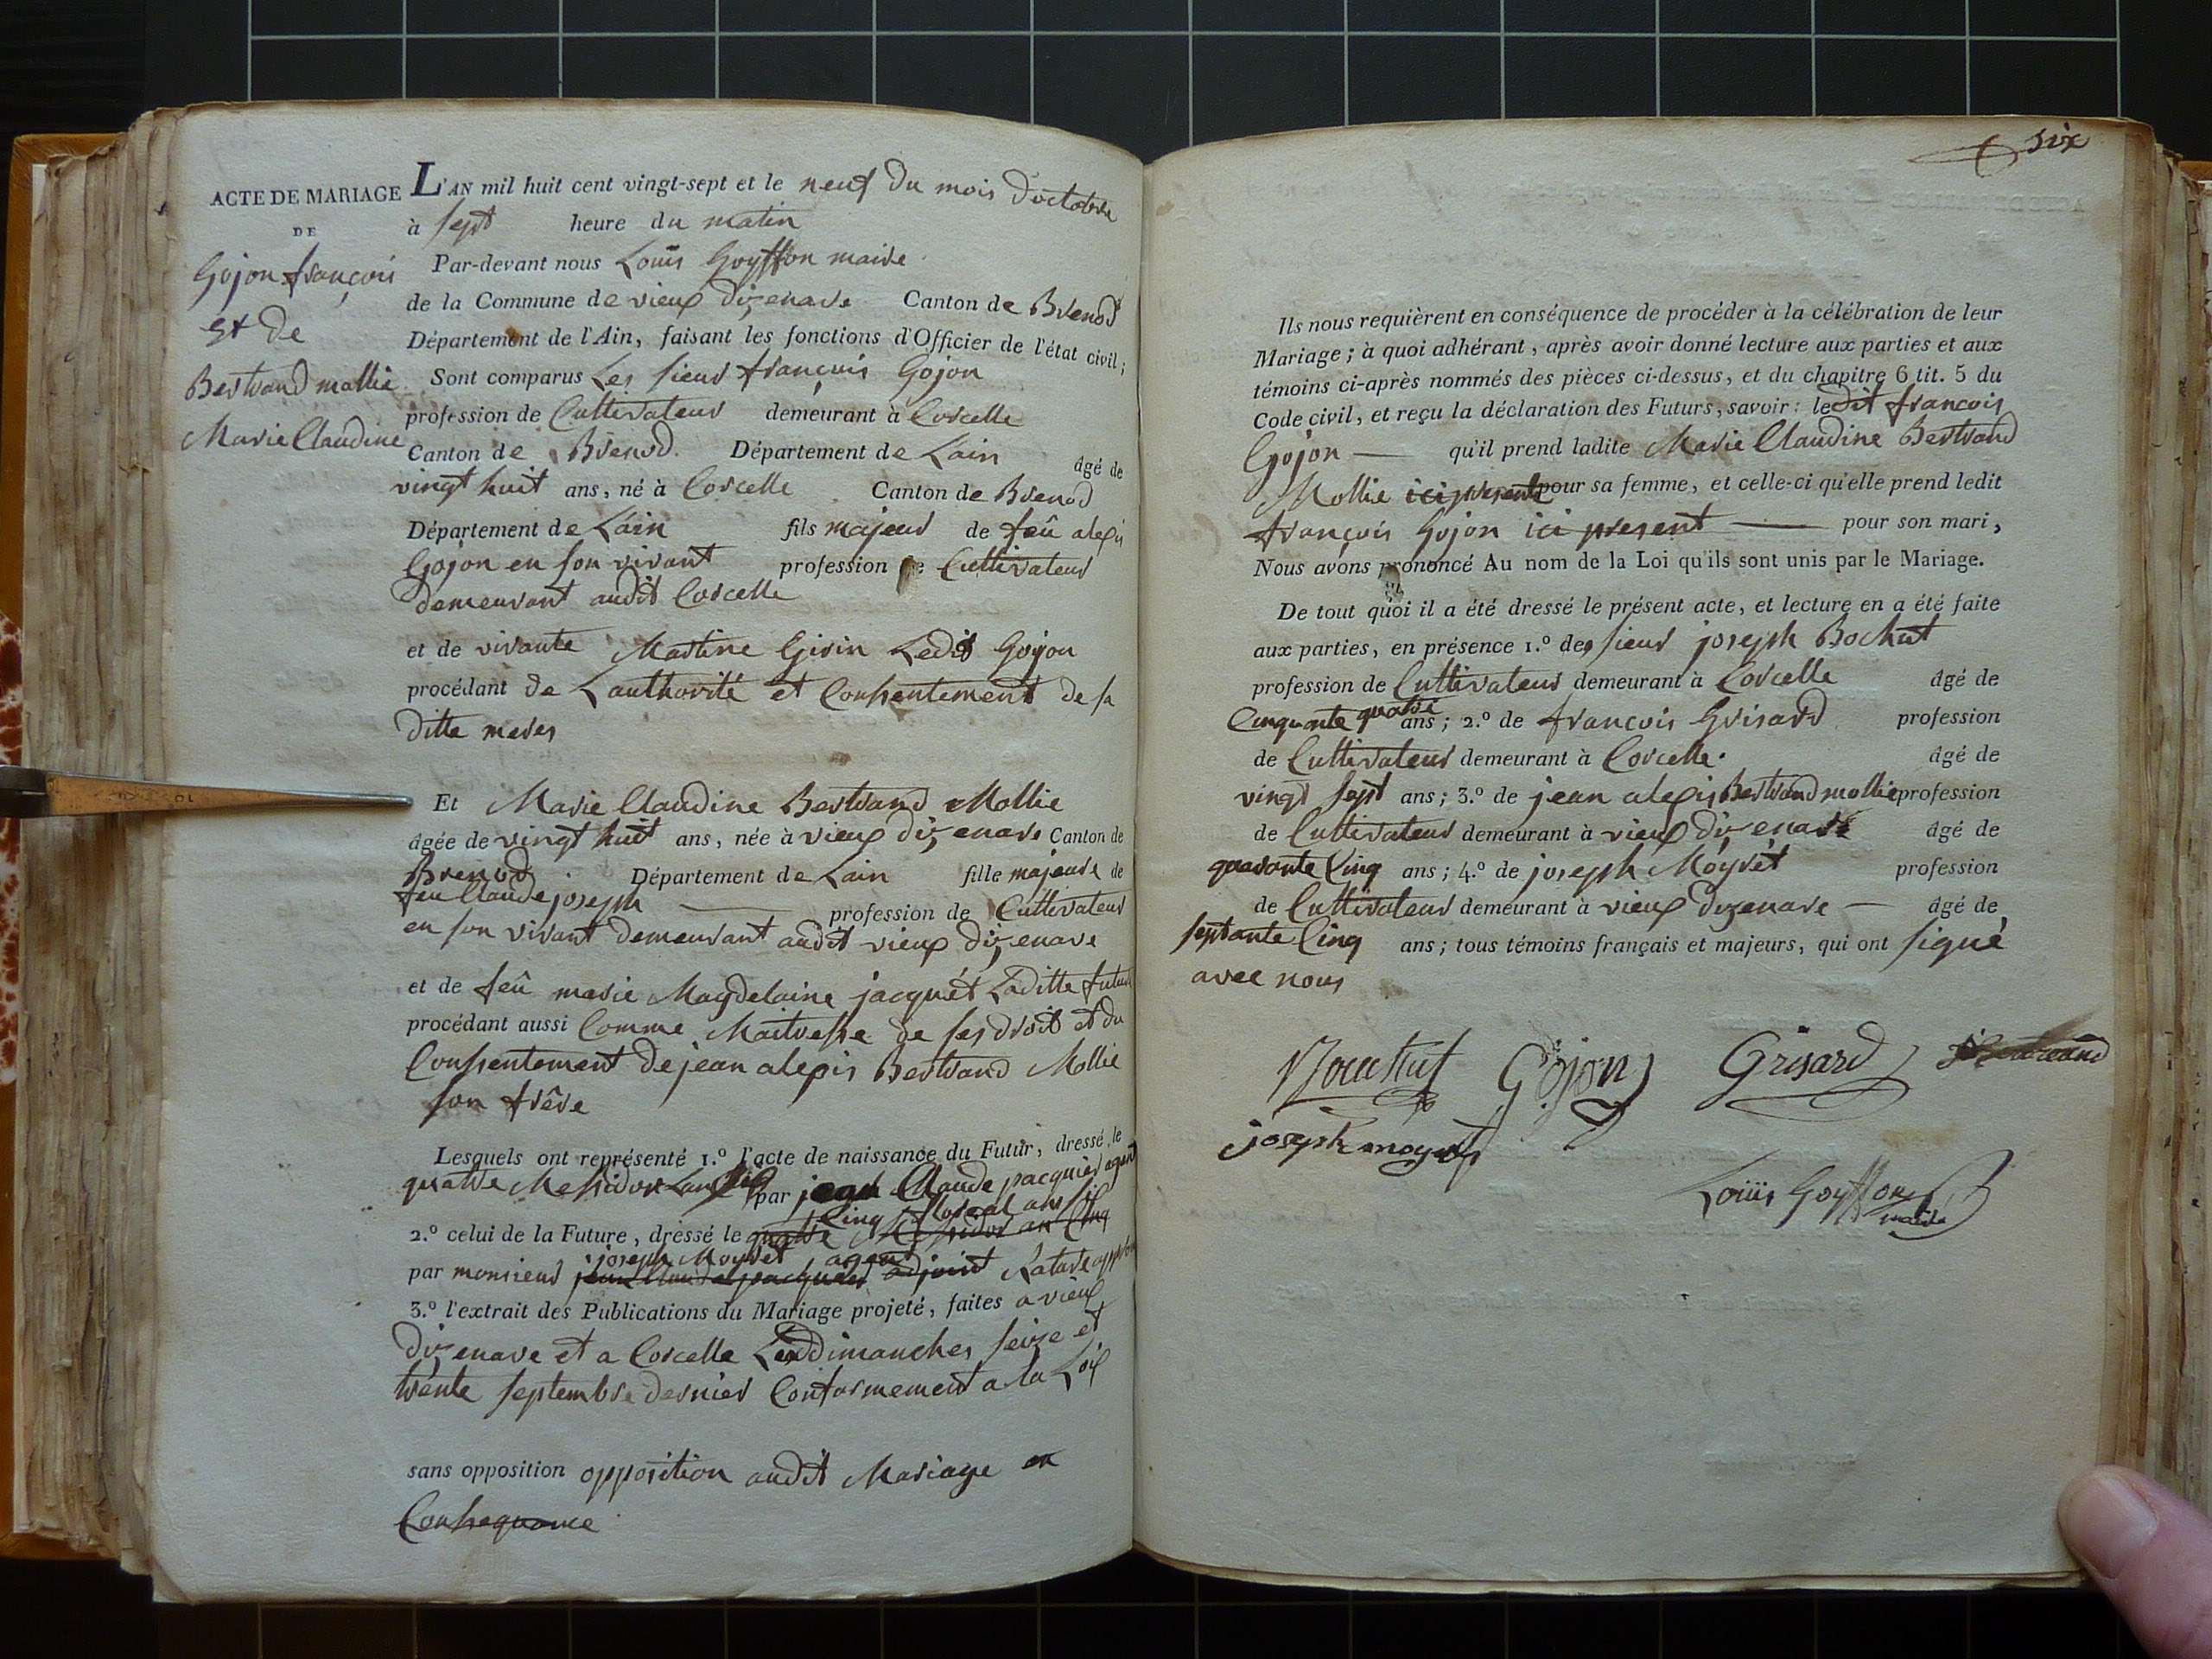 ACTE DE MARIAGE
DE
Gojon françois
et de
Bertrand mollie
Marie Claudine
L'AN mil huit cent vingt-sept et le neuf du mois d'octobre
à sept heure du matin
Par-devant nous Louis Goyffon maire
de la Commune de vieux dizenave Canton de Brenod
Département de l'Ain, faisant les fonctions d'Officier de l'état civil;
Sont comparus Les sieur françois Gojon
profession de Cultivateur demeurant à Corcelle
Canton de Brenod Département de Lain âgé de
vingt huit ans, né à Corcelle Canton de Brenod
Département de Lain fils majeur de feû alexis
Gojon en son vivant profession de Cultivateur
demeurant audit Corcelle
et de vivante Martine Girin Ledit Gojon
procédant de Lauthorité et Consentement de sa
ditte merer
Et Marie Claudine Bertrand Mollie
âgée de vingt huit ans, née à vieux dizenave Canton de
Brenod Département de Lain fille majeure de
feu Claude joseph profession de Cultivateur
en son vivant demeurant audit vieux dizenave
et de feû marie Magdelaine jacquét Laditte future
procédant aussi Comme Maitresse de ses droit et du
Consentement de jean alexis Bertrand Mollie
son frêre
Lesquels ont représenté 1.º l'acte de naissance du Futur, dressé le
quatre Messidor Lan par jean Claude pacquier agent
Cinq floreal an six
2.º celui de la Future, dressé le quatre Messidor an Cinq
joseph Moyret agent
par monsieur jean Claude pacquier adjoint
3.º l'extrait des Publications du Mariage projeté, faites a vieux
dizenave et a Corcelle Les dimanches seize et
trente septembre dernier Conformement a la Loix
sans opposition opposition audit Mariage en
Consequance
six
Ils nous requièrent en conséquence de procéder à la célébration de leur
Mariage; à quoi adhérant, après avoir donné lecture aux parties et aux
témoins ci-après nommés des pièces ci-dessus, et du chapitre 6 tit. 5 du
Code civil, et reçu la déclaration des Futurs, savoir: ledit françois
Gojon — qu'il prend ladite Marie Claudine Bertrand
Mollie ici presente pour sa femme, et celle-ci qu'elle prend ledit
françois Gojon ici present — pour son mari,
Nous avons prononcé Au nom de la Loi qu'ils sont unis par le Mariage.
De tout quoi il a été dressé le présent acte, et lecture en a été faite
aux parties, en présence 1.º des sieur joseph Bochut
profession de Cultivateur demeurant à Corcelle âgé de
Cinquante quatre ans; 2.º de françois Grisard profession
de Cultivateur demeurant à Corcelle. âgé de
vingt sept ans; 3.º de jean alexis Bertrand mollie profession
de Cultivateur demeurant à vieux dizenave âgé de
quarante Cinq ans; 4.º de joseph Moyrét profession
de Cultivateur demeurant à vieux dizenave — âgé de
septante Cinq ans; tous témoins français et majeurs, qui ont signé
avec nous
Gojon Grisard
joseph moyret
Louis Goyffon
maire